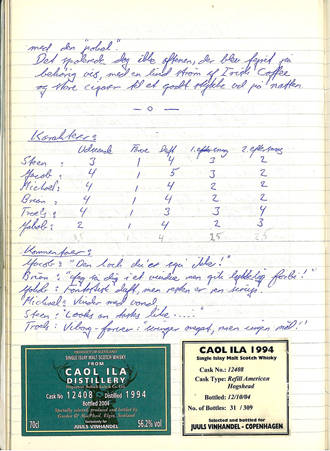 med den "pokal".
Det spolerede dog ikke aftenen, der blev fejret på
behørig vis, med en lind strøm af Irish Coffee
og store cigarer til et godt stykke ud på natten.
— o —
Karakterer:
Udseende Farve Duft 1. eftersmag 2. eftersmag
Steen: 3 1 4 3 2
Jacob: 4 1 5 3 2
Michael: 4 1 4 2 2
Brian: 4 1 4 2 2
Troels: 4 1 3 3 4
Jakob: 2 1 4 2 3
4 2.5 2.5
Kommentarer:
Jacob: "Den
Brian: "
Jakob: "Fantastisk duft, men resten er en
Michael: Vinder med vand
Steen: "Looks an tasks like ....."
Troels: "
PRODUCT OF SCOTLAND
SINGLE ISLAY MALT SCOTCH WHISKY
FROM
CAOL ILA
DISTILLERY
Cask No 12408 Distilled 1994
Bottled 2004
Specially selected, produced and bottled by
Gordon & MacPhail, Elgin, Scotland
Exclusively for
JUULS VINHANDEL
70cl 56.2% vol
CAOL ILA 1994
Single Islay Malt Scotch Whisky
Cask No.: 12408
Cask Type: Refill American
Hogshead
Bottled: 12/10/04
No. of Bottles: 31 / 309
Selected and bottled for
JUULS VINHANDEL - COPENHAGEN.